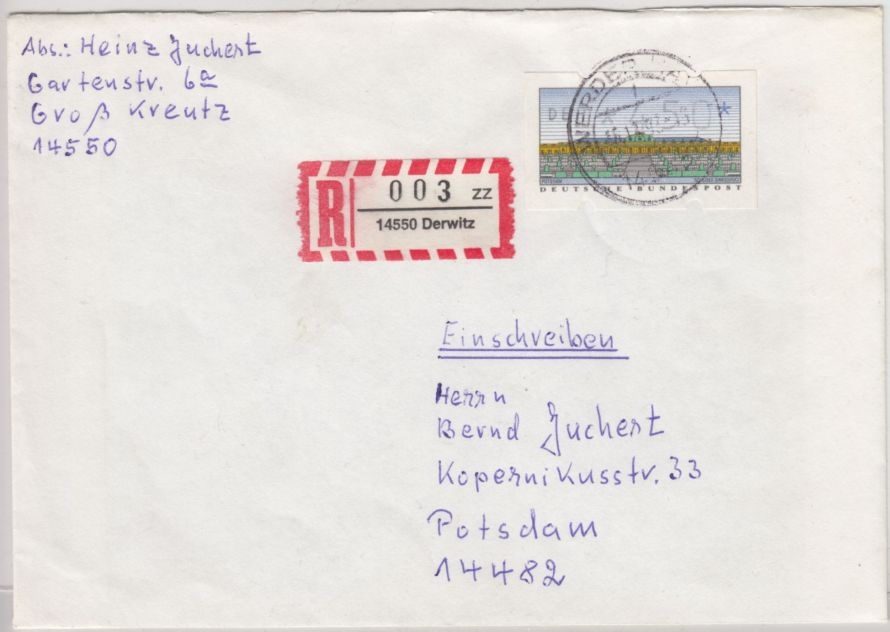 Abs.: Heinz Juchert
Gartenstr. 6a
Groß Kreutz
14550
R 003 zz
14550 Derwitz
WERDER
DEUTSCHE BUNDESPOST
Einschreiben
Herrn
Bernd Juchert
Kopernikusstr. 33
Potsdam
14482